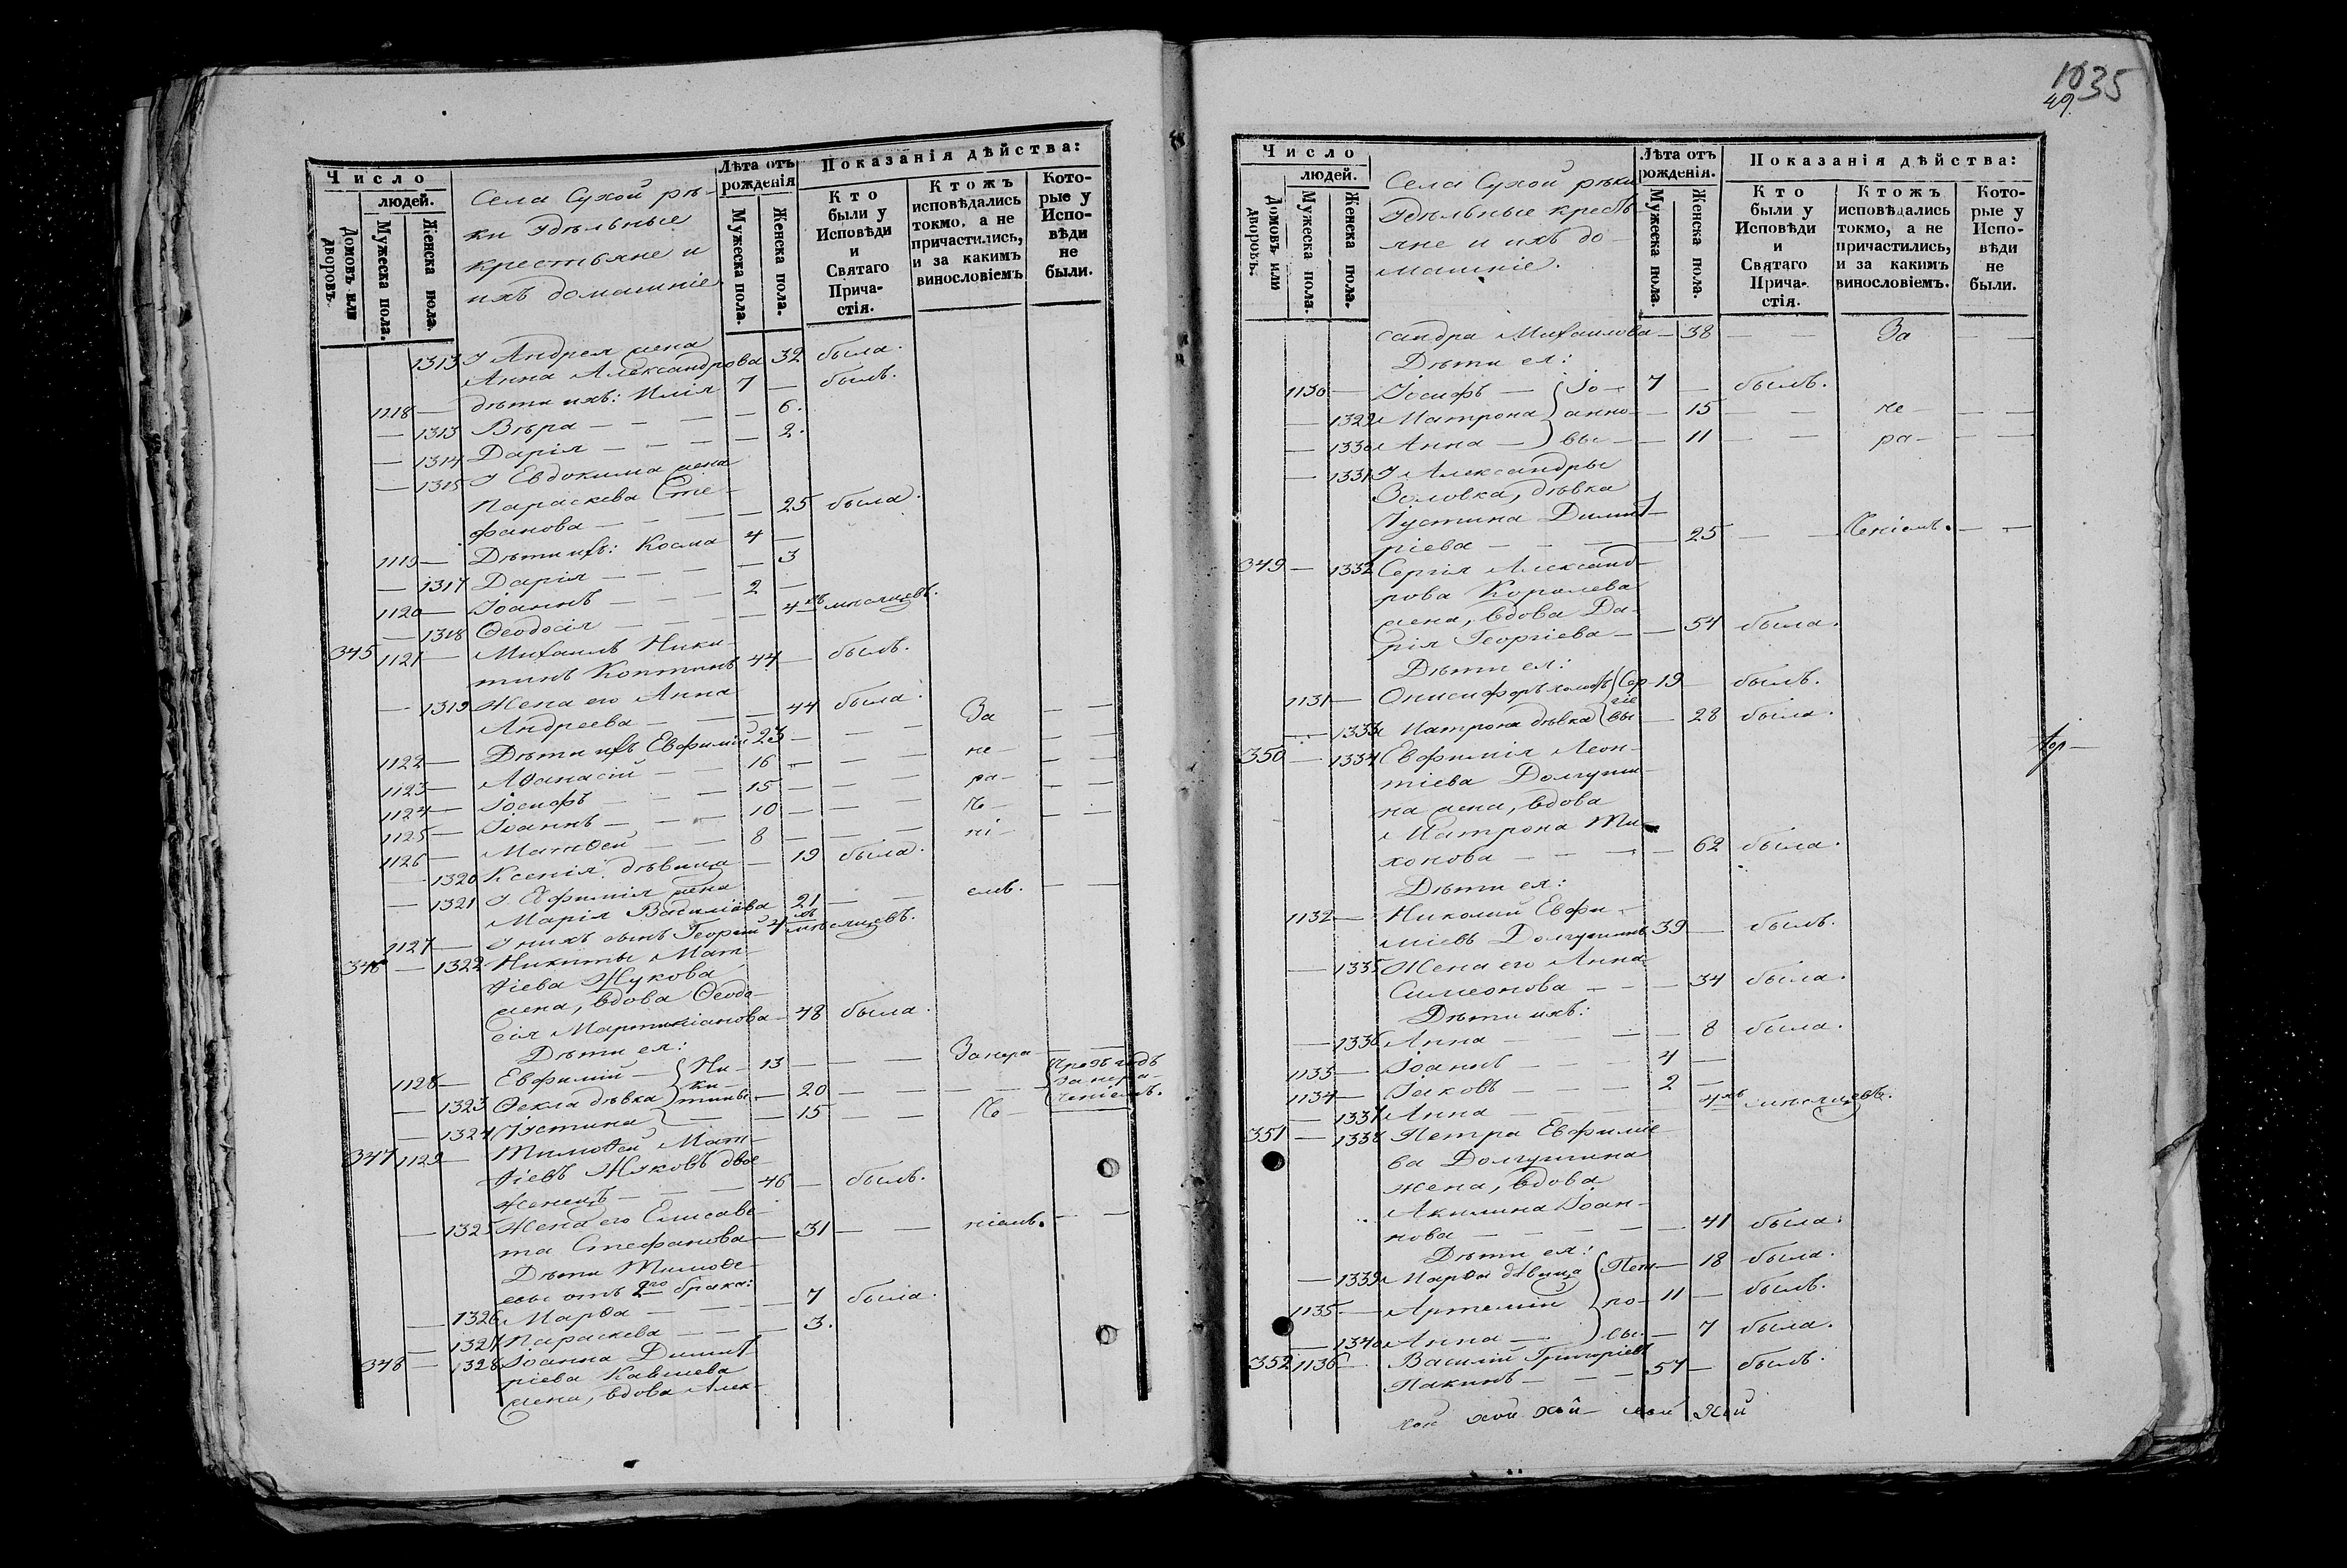 Число
людей.
Домовъ или дворовъ.
Мужеска пола.
Женска пола.
Села Сухой рѣ-
ки Удѣльные
крестьяне и
ихъ домашніе.
Лѣта отъ рожденія
Мужеска пола.
Женска пола.
Показанія дѣйства:
Кто были у Исповѣди и Святаго Прича-стія.
Ктожъ исповѣдались токмо, а не причастились, и за какимъ винословіемъ
Кото-рые у Испо-вѣди не были.
1313 У Андрея жена
Анна Александрова 32 была.
1118 — дѣти ихъ: Илія 7 — былъ.
— 1313 Вѣра — — — 6.
— 1314 Дарія — — — 2.
— 1315 У Евдокима жена
Параскева Сте-
фанова — — — 25 была.
1119 — Дѣти ихъ: Косма 4 —
— 1317 Дарія — — — 3
1120 — Іоаннъ — — 2 —
— 1318 Ѳеодосія — — — 4хъ мѣсяцевъ.
345 1121 — Михаилъ Ники-
тинъ Коптинъ 44 — былъ.
— 1319 Жена его Анна
Андреева — — — 44 была.
1122 — Дѣти ихъ Евфимій 23 — — — За — —
1123 — Аѳанасій — — 16 — — — не — —
1124 — Іосифъ — — 15 — — — ра — —
1125 — Іоаннъ — — 10 — — — че — —
1126 — Матѳей — — 8 — — — ні — —
— 1320 Ксенія дѣвица — 19 была.
— 1321 У Евфимія жена
Марія Василіева 21 — — емъ. — —
1127 — У нихъ сынъ Георгій 4хъ мѣсяцевъ.
346 — 1322 Никиты Мат-
ѳіева Жукова
жена, вдова Ѳеодо-
сія Мартиніанова — 48 была.
Дѣти ея:
1128 — Евфимій — Ни- 13 — — — Занера — —
— 1323 Ѳекла дѣвка ки- тины — 20 — — — Чрезъ годъ за нера- ченіемъ.
— 1324 Іустина — — 15 — — че —
347 1129 — Тимоѳей Мат-
ѳіевъ Жуковъ двое-
женецъ — — — 46 — былъ.
— 1325 Жена его Елисаве-
та Стефанова — 31 — — ніемъ. — —
Дѣти Тимоѳе-
евы отъ 2го брака:
— 1326 Марѳа — — — 7 была.
— 1327 Параскева — — — 3.
348 — 1328 Іоанна Димит-
ріева Кавшева
жена, вдова Алек-
1035
49.
Число
людей.
Домовъ или дворовъ.
Мужеска пола.
Женска пола.
Села Сухой рѣки
Удѣльные кресть-
яне и ихъ до-
машніе.
Лѣта отъ рожденія.
Мужеска пола.
Женска пола.
Показанія дѣйства:
Кто были у Исповѣди и Святаго Прича-стія.
Ктожъ исповѣдались токмо, а не причастились, и за какимъ винословіемъ.
Кото-рые у Испо-вѣди не были.
сандра Михаилова — 38 — — За — —
Дѣти ея:
1130 — Іосифъ — Іо- 7 — былъ.
— 1329 Матрона анно- — 15 — — не — —
— 1330 Анна — вы — 11 — — ра — —
— 1331 У Александры
Золовка, дѣвка
Іустина Димит-
ріева — — — 25 — — ченіемъ. — —
349 — 1332 Сергія Александ-
рова Королева
жена, вдова Да-
рія Георгіева — — 54 была.
Дѣти ея:
1131 — Онисифоръ холостъ Сер- гіе 19 — былъ.
— 1333 Матрона дѣвка вы — 28 была.
350 — 1334 Евфимія Леон-
тіева Долгуши-
на жена, вдова
Матрона Ти-
хонова — — — 62 была.
Дѣти ея:
1132 — Николай Евфи-
міевъ Долгушинъ 39 — былъ.
— 1335 Жена его Анна
Симеонова — — — 34 была.
Дѣти ихъ:
— 1336 Анна — — — 8 была.
1133 — Іоаннъ — — 4 —
1134 — Іаковъ — — 2 —
— 1337 Анна — — — 4хъ мѣсяцевъ.
351 — 1338 Петра Евфиміе-
ва Долгушина
жена, вдова
Акилина Іоан-
нова — — — 41 была.
Дѣти ея:
— 1339 Марѳа дѣвица Пет — 18 была.
1135 — Артемій ро- 11 — былъ.
— 1340 Анна — вы. — 7 была.
352 1136 — Василій Григоріевъ
Пакинъ — — — 57 — былъ.